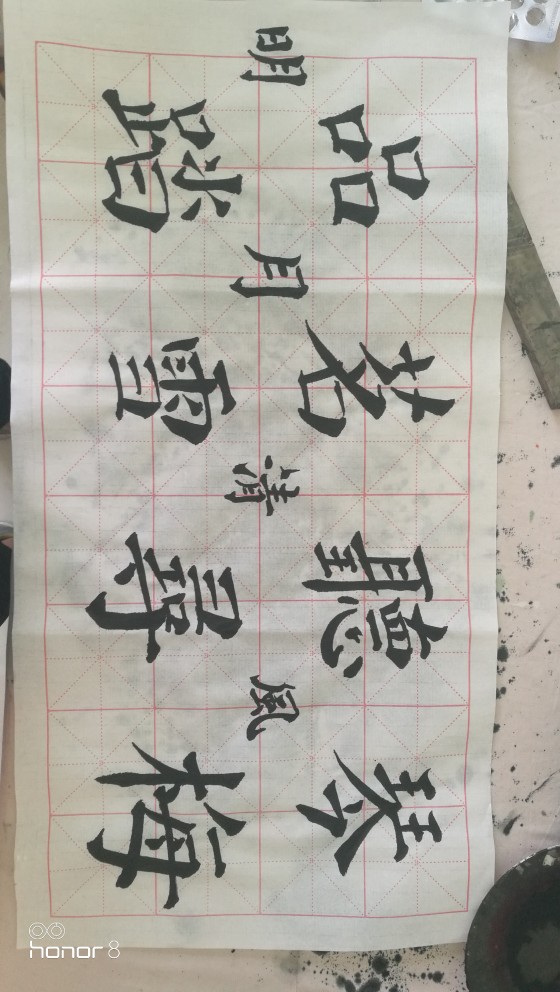 品茗聽琴
明月清風
踏雪尋梅
honor 8